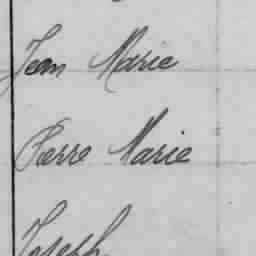 Jean Marie
Pierre Marie
Joseph